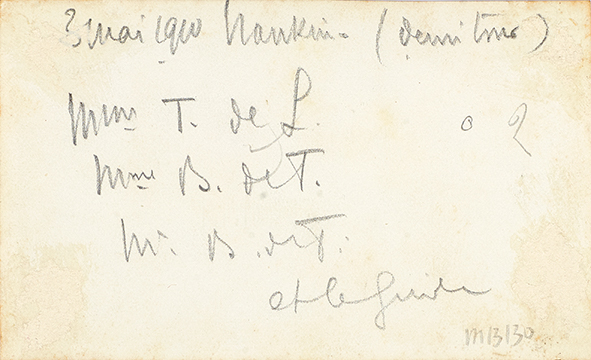 3 mai 1910 Nankin - (demi tour)
Mme T. de L. o 2
Mme B. de T.
Mr. B. de T.
et le guide
M/3/30